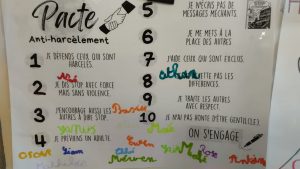 Pacte
Anti-harcèlement
1 JE DÉFENDS CEUX QUI SONT
HARCELÉS.
2 JE DIS STOP AVEC FORCE
MAIS SANS VIOLENCE.
3 J'ENCOURAGE AUSSI LES
AUTRES À DIRE STOP.
4 JE PRÉVIENS UN ADULTE.
5 JE N'ÉCRIS PAS DE
MESSAGES MÉCHANTS.
6 JE ME METS À LA
PLACE DES AUTRES.
7 J'AIDE CEUX QUI SONT EXCLUS.
8 LES
DIFFÉRENCES.
9 JE TRAITE LES AUTRES
AVEC RESPECT.
10 JE N'AI PAS HONTE D'ÊTRE GENTIL(LE).
ON S'ENGAGE
Liam
Merwen
Rose